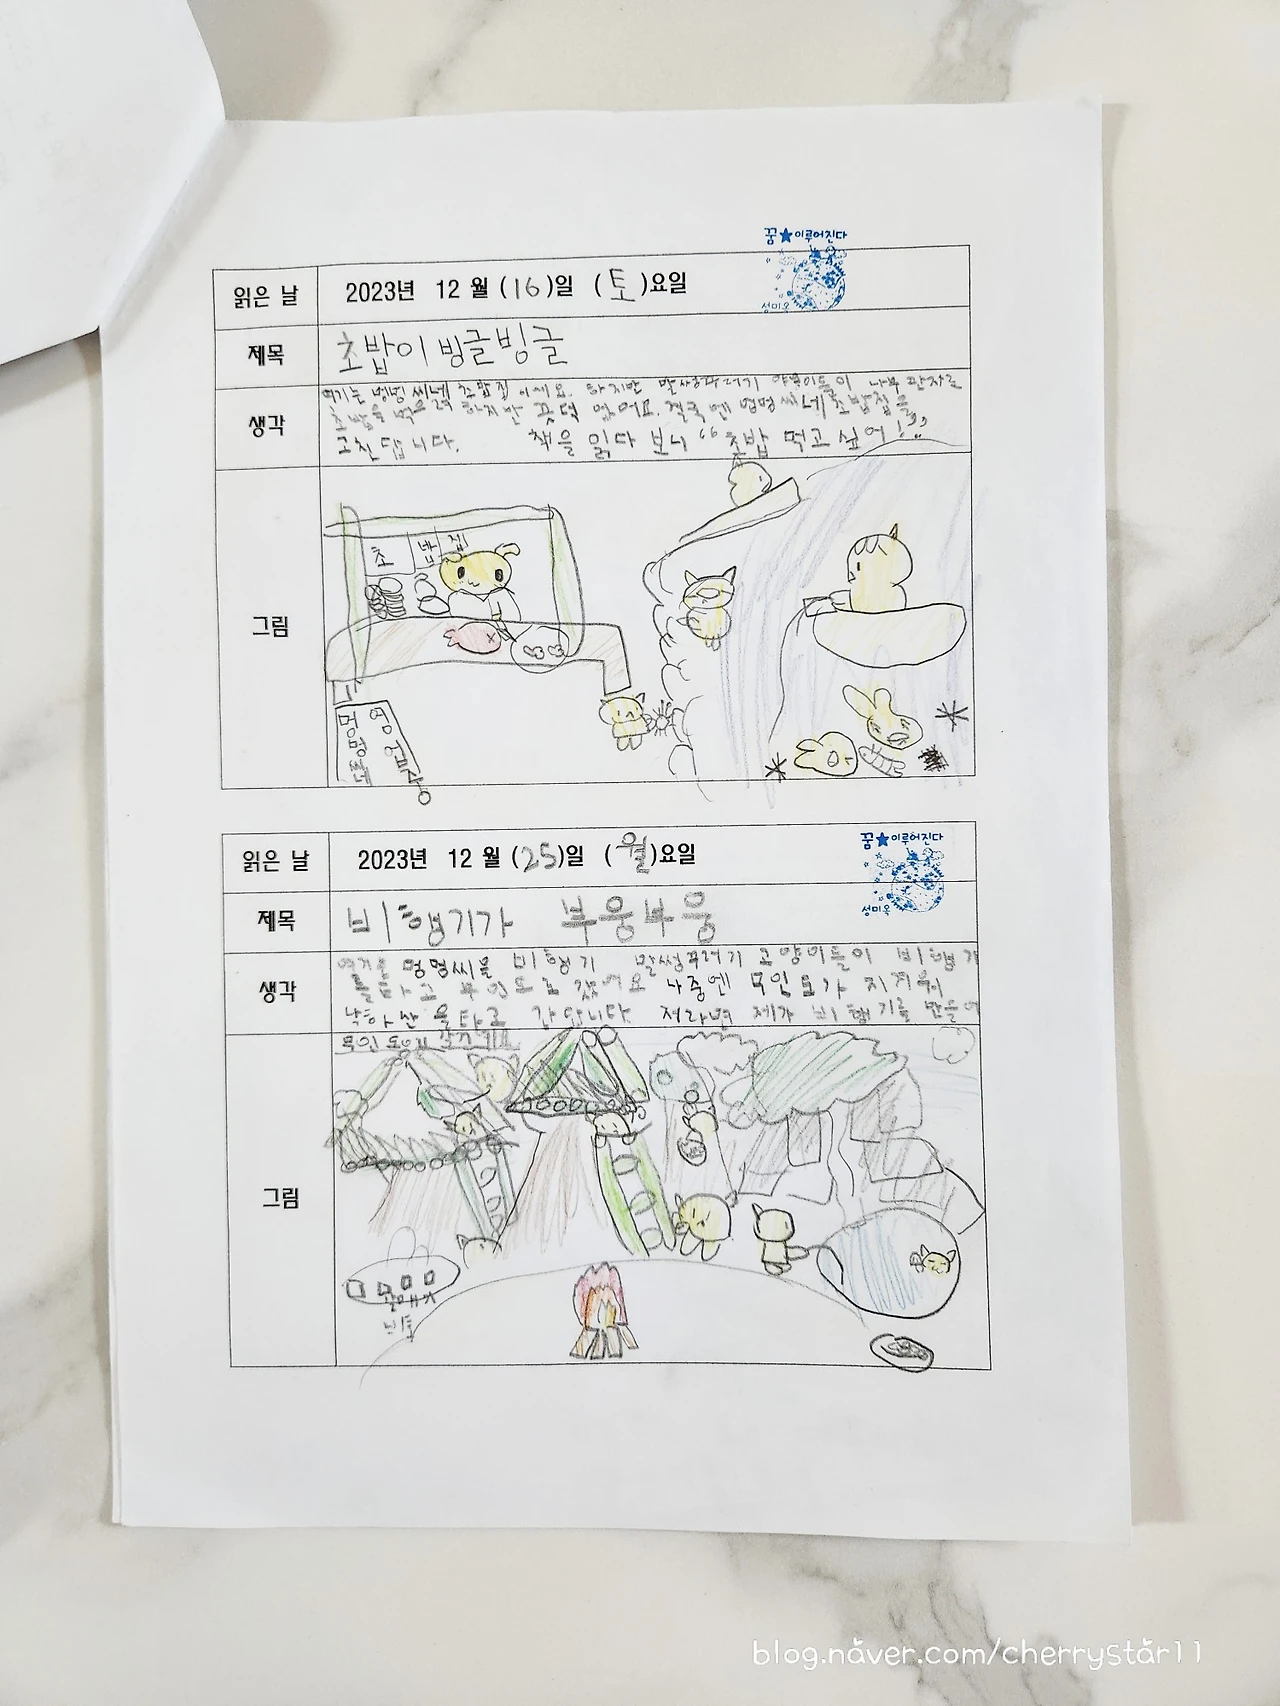 꿈★이루어진다
읽은 날 2023년 12월 (16)일 (토)요일
성미옥
제목 초밥이 빙글빙글
여기는 멍멍 씨네 초밥집 이에요. 하지만 말썽꾸러기 야옹이들이 나무 판자로
초밥을 먹을려 하지만 끗덕 없어요. 결국엔 멍멍 씨네 초밥집을
생각
고친답니다. 책을 읽다 보니 “초밥 먹고 싶어!”
초밥집
그림
멍멍씨네
영업상
꿈★이루어진다
읽은 날 2023년 12월 (25)일 (월)요일
성미옥
제목 비행기가 부웅부웅
멍멍씨를 비행기 말썽꾸러기 고양이들이 비행기
를타고 무인도로 갔어요 나중엔 무인도가 지겨워
생각
낙하산 을타고 간답니다 저라면 제가 비행기를 만들어
무인도에
그림
blog.naver.com/cherrystar11